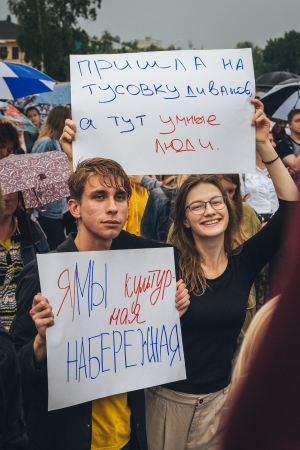 пришла на
тусовку диванов,
а тут умные
люди.
ЯМЫ культур
ная
НАБЕРЕЖНАЯ